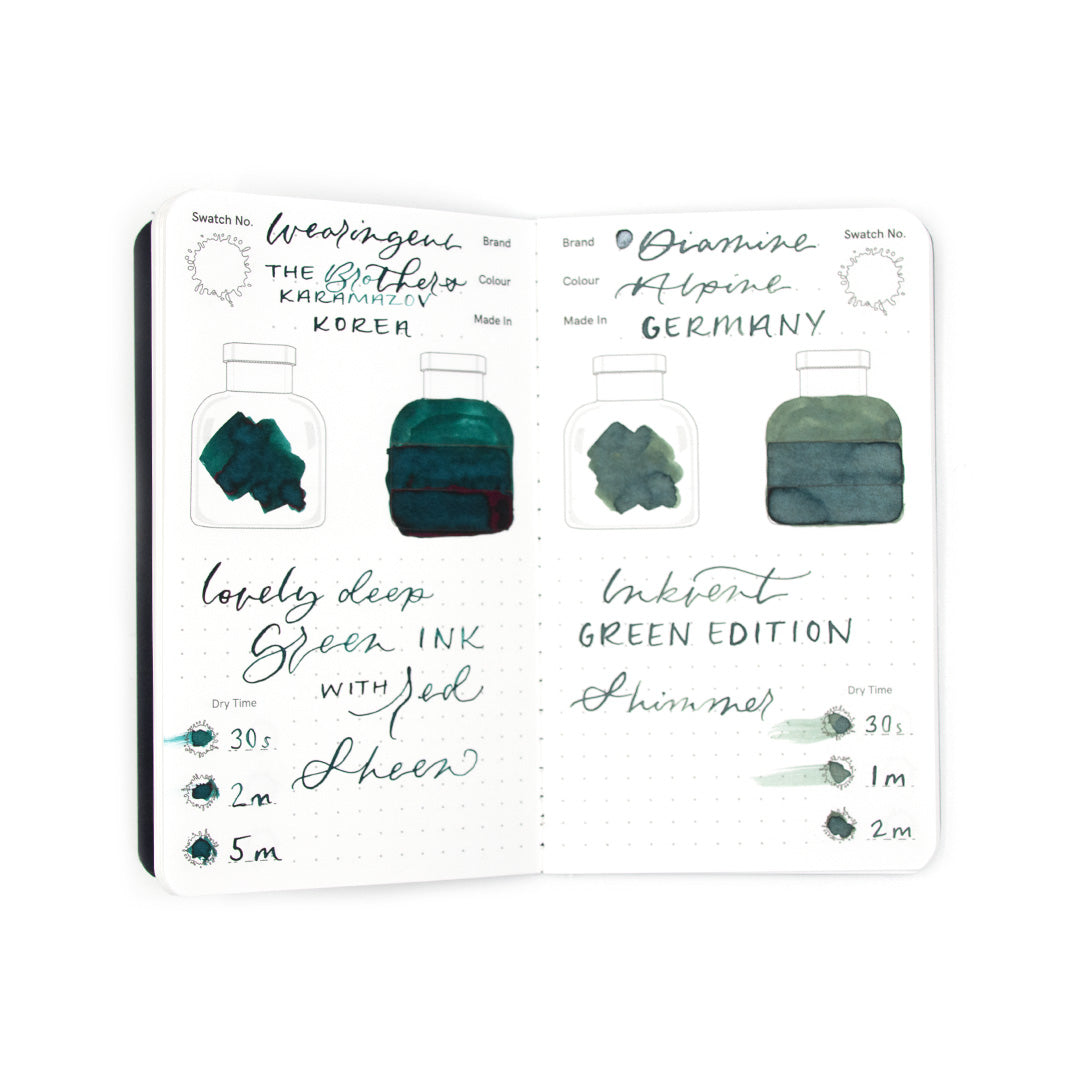 Swatch No.
Wearingeul
Brand
THE Brothers
KARAMAZOV
Colour
KOREA
Made In
Lovely deep
Green INK
WITH red
Sheen
Dry Time
30s
2m
5m
Brand
Diamine
Swatch No.
Colour
Alpine
Made In
GERMANY
Inkvent
GREEN EDITION
Shimmer
Dry Time
30s
1m
2m